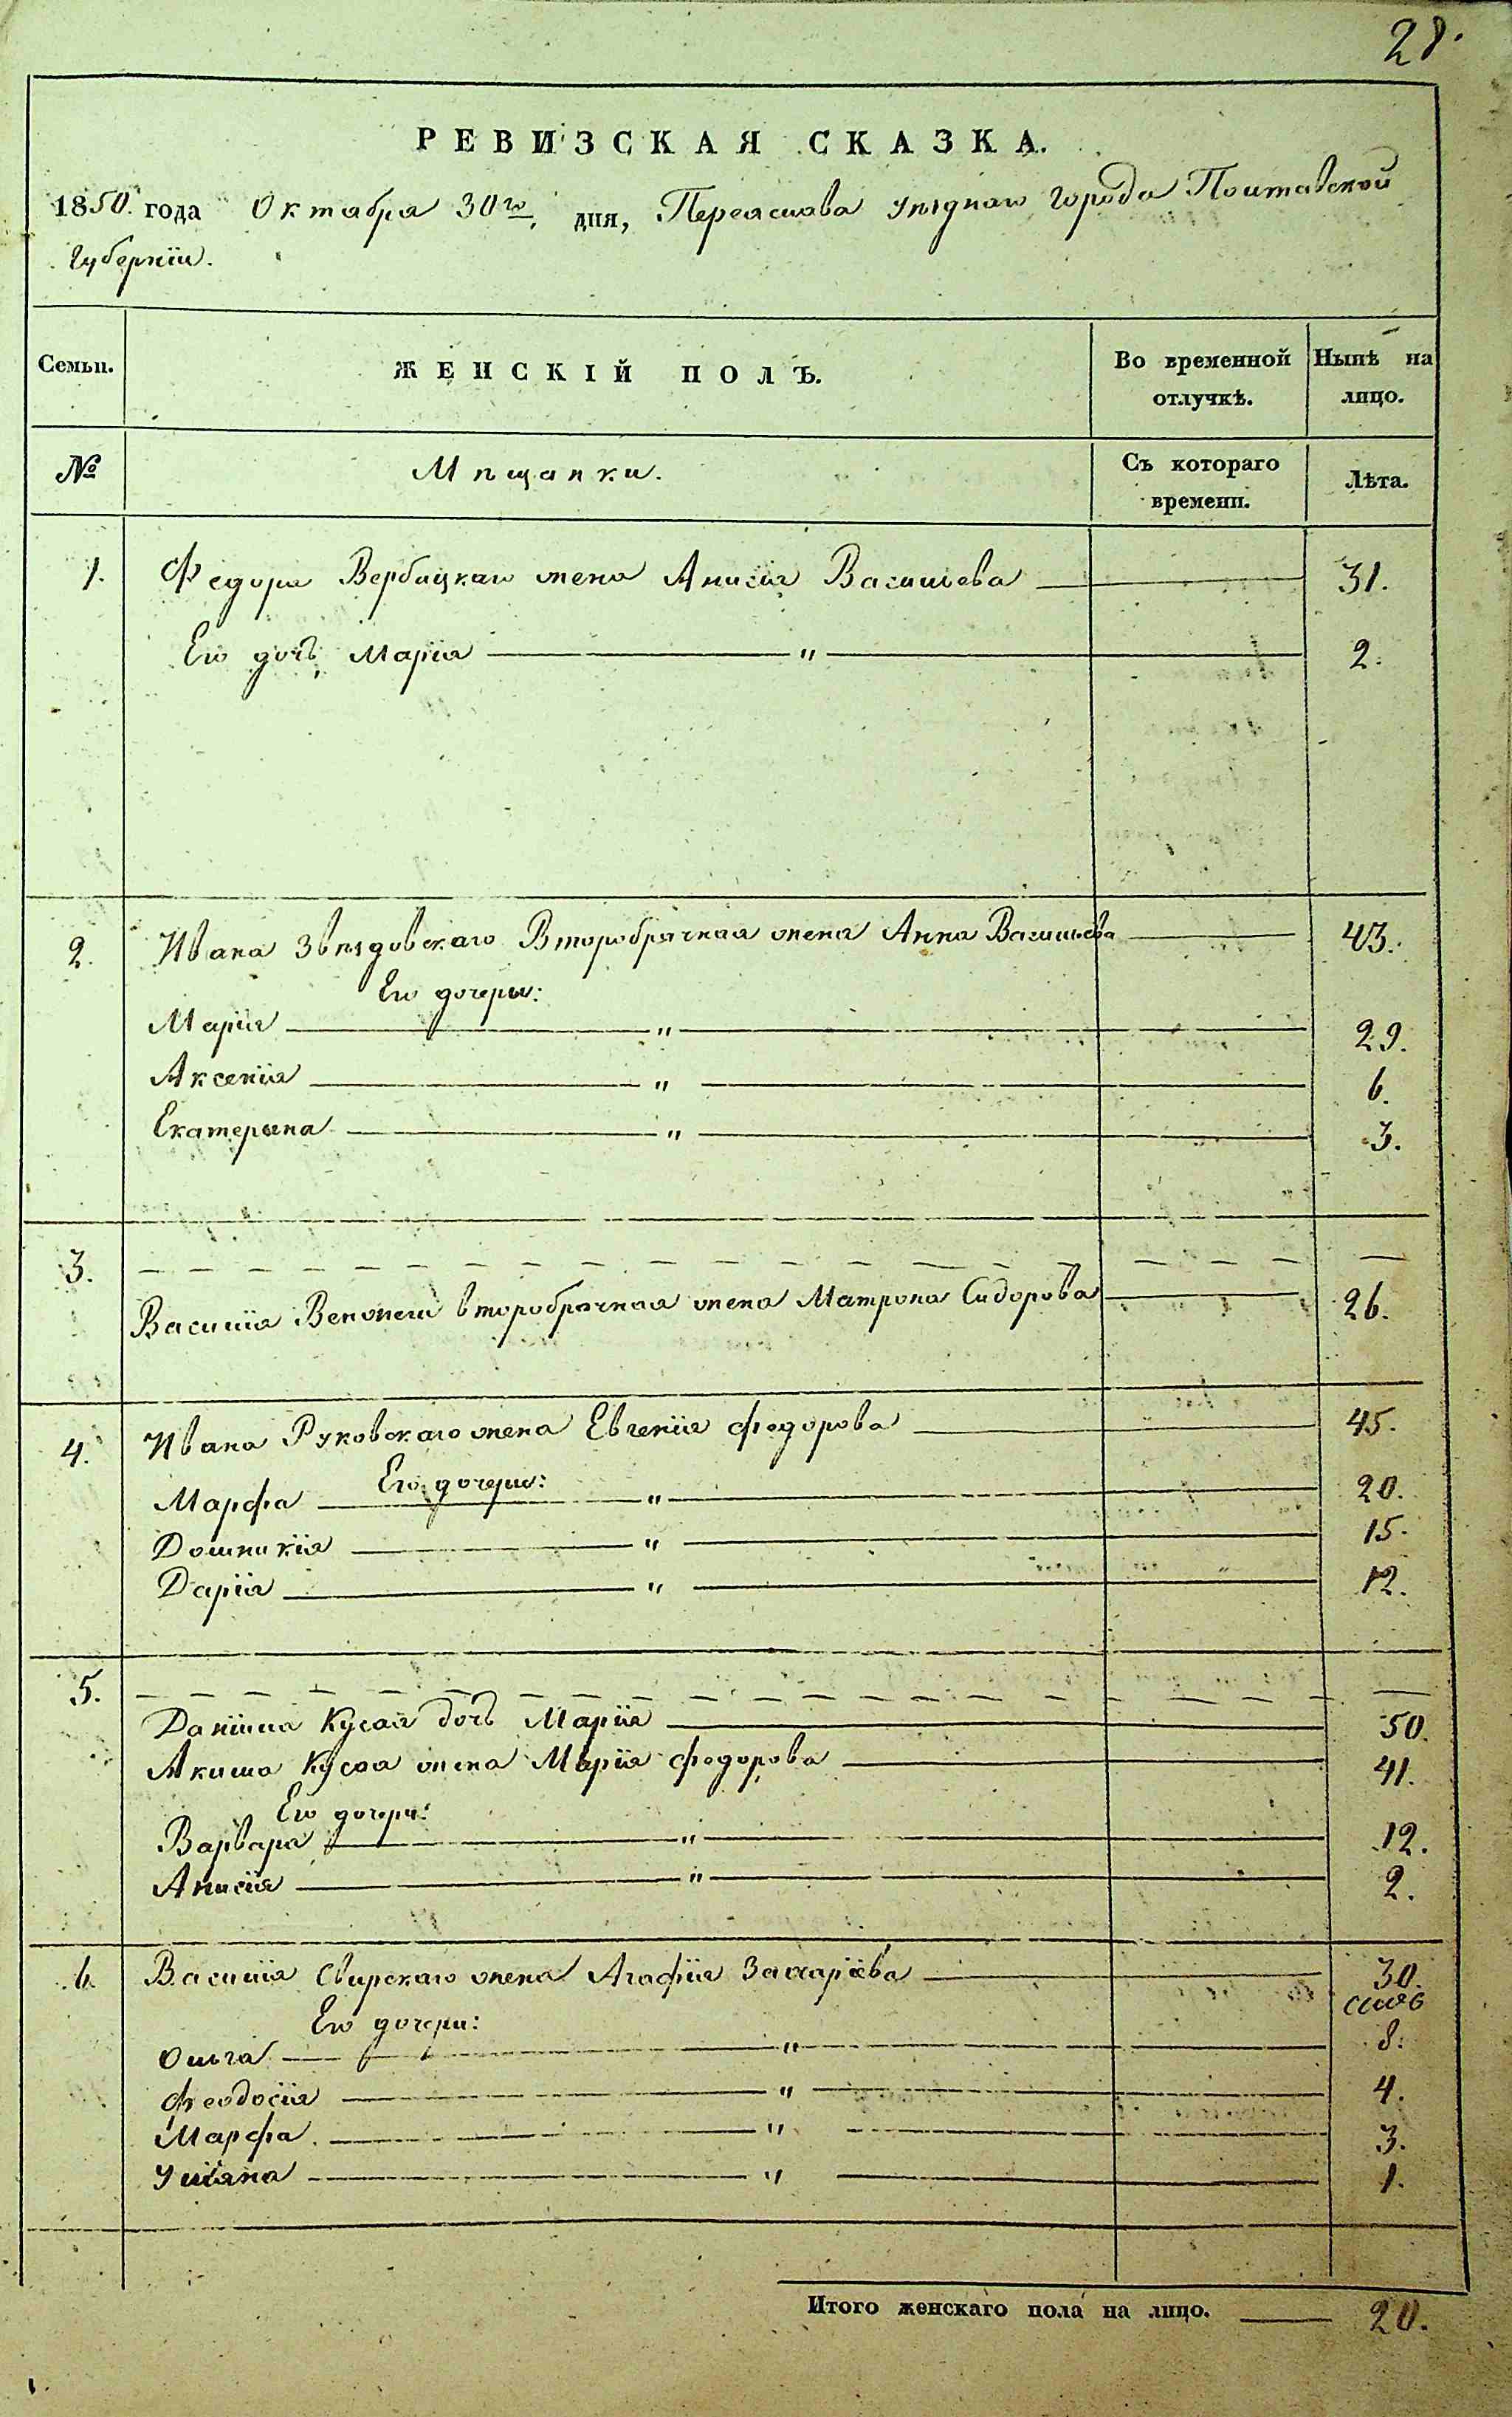 28.
РЕВИЗСКАЯ СКАЗКА.
1850. года Октабра 30го, дня, Переаслава уѣзднаго города Полтавской
Губернїи.
Семьи. ЖЕНСКІЙ ПОЛЪ. Во временной отлучкѣ. Нынѣ на лицо.
№ Мѣщанки. Съ котораго времени. Лѣта.
1. Федора Вербицкаго жена Анисїя Васильева 31.
Его дочь Марїя " 2.
2. Ивана Звѣздовскаго Второбрачная жена Анна Васильева 43.
Его дочери:
Марїя " 29.
Аксенїя " 6.
Екатерына " 3.
3. — —
Василїя второбрачная жена Матрона Сидорова 26.
4. Ивана Руковскаго жена Евгенїя Федорова 45.
Его дочери:
Марфа " 20.
Домникїя " 15.
Дарїя " 12.
5. — —
Данїила Кусая дочь Марїя 50.
Акима Кусая жена Марїя Федорова 41.
Его дочери:
Варвара " 12.
Анисїя " 2.
6. Василїя Свирскаго жена Агафїя Захарїева 30.
Его дочери:
Ольга " 8.
Феодосїя " 4.
Марфа " 3.
Улїяна " 1.
Итого женскаго пола на лицо. — 20.